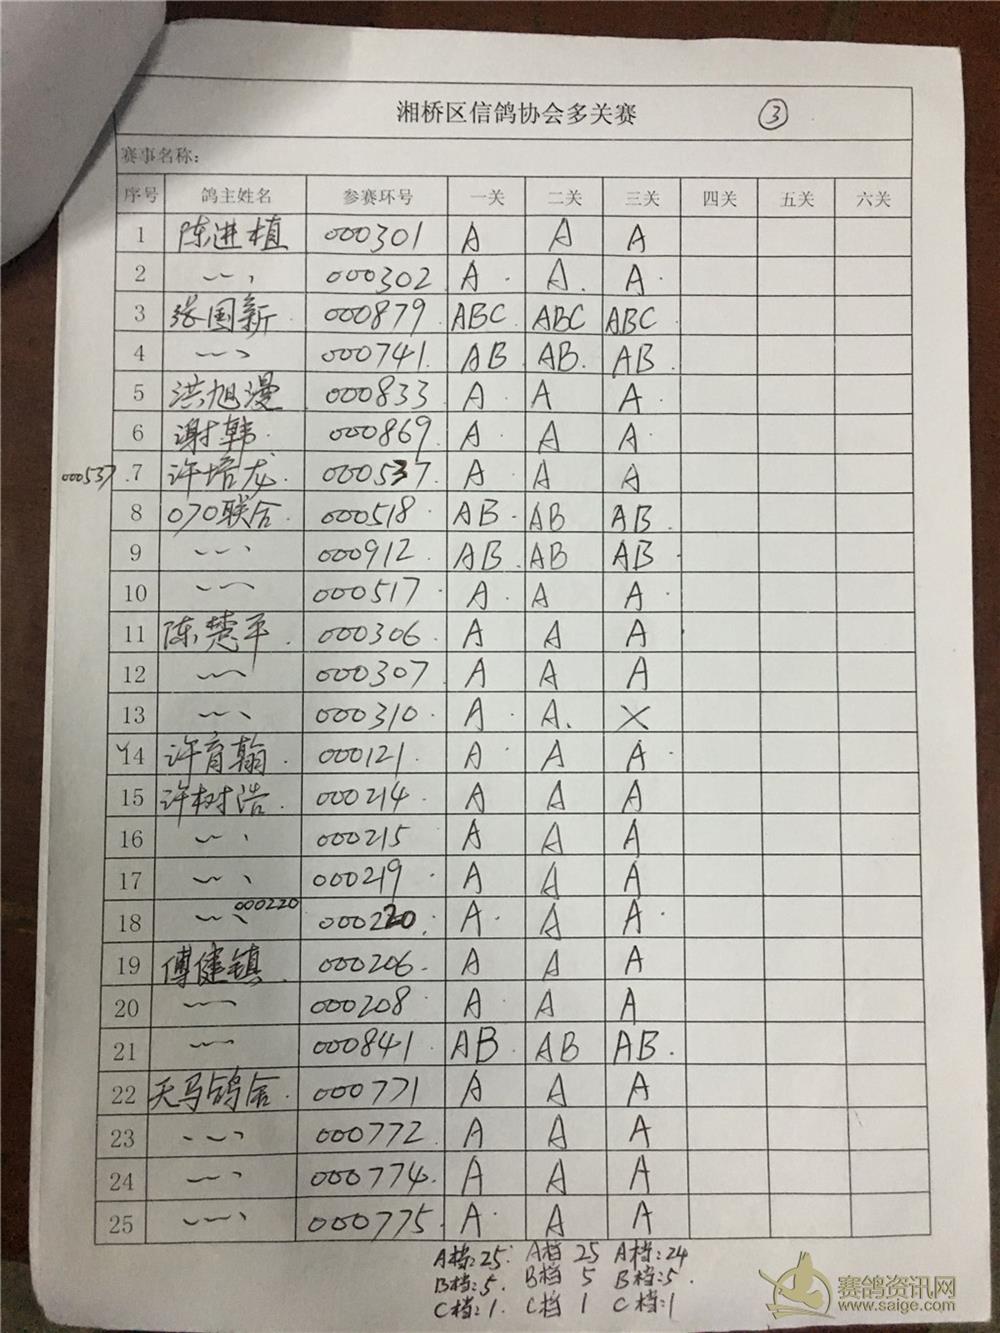 湘桥区信鸽协会多关赛 ③
赛事名称：
序号 鸽主姓名 参赛环号 一关 二关 三关 四关 五关 六关
1 陈进植 000301 A A A
2 000302 A A A
3 张国新 000879 ABC ABC ABC
4 000741 AB AB AB
5 洪旭漫 000833 A A A
6 谢韩 000869 A A A
000537 7 许培龙 000537 A A A
8 070联合 000518 AB AB AB
9 000912 AB AB AB
10 000517 A A A
11 陈楚平 000306 A A A
12 000307 A A A
13 000310 A A X
14 许育翰 000121 A A A
15 许树浩 000214 A A A
16 000215 A A A
17 000219 A A A
18 000220 000220 A A A
19 傅健镇 000206 A A A
20 000208 A A A
21 000841 AB AB AB
22 天马鸽舍 000771 A A A
23 000772 A A A
24 000774 A A A
25 000775 A A A
A档:25 A档 25 A档:24
B档:5 B档 5 B档:5
C档:1 C档 1 C档:1
赛鸽资讯网
www.saige.com